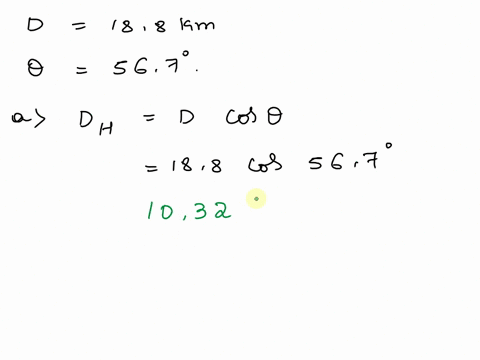 D = 18.8 km
θ = 56.7°.
a> D_H = D cosθ
= 18.8 cos 56.7°
10.32